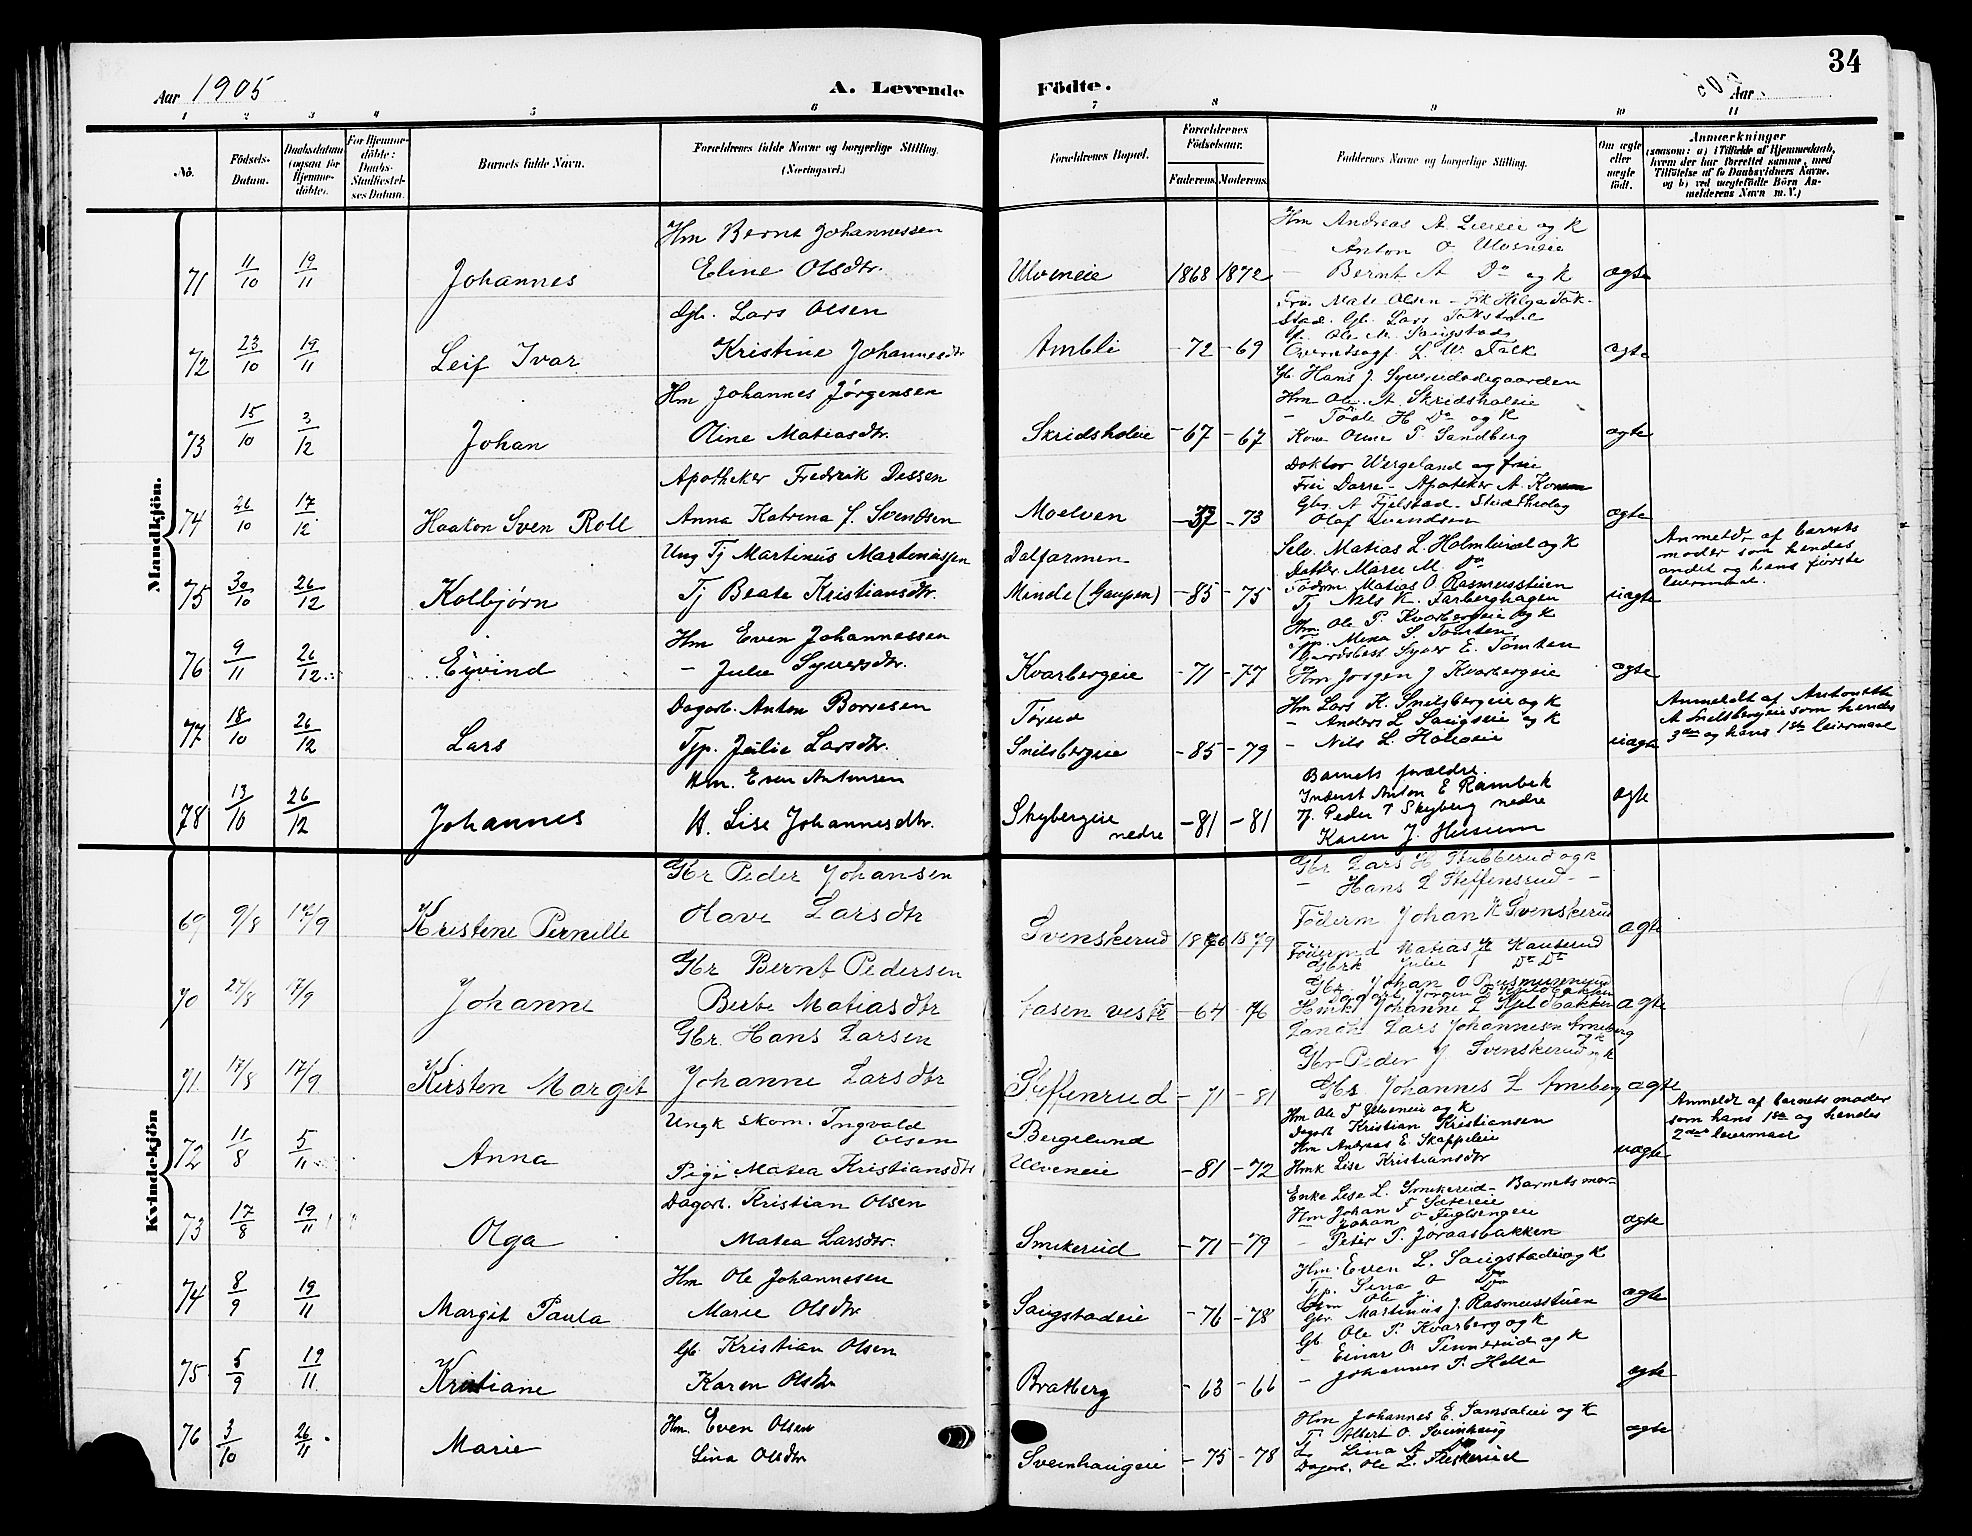 34
Aar 1905
A. Levende Födte.
Aar
1 2 3 4 5 6 7 8 9 10 11
No.
Födsels-Datum.
Daabsdatum (ogsaa for Hjemme-döbte).
For Hjemme-döbte: Daabs-Stadfæstel-ses Datum.
Barnets fulde Navn.
Forældrenes fulde Navne og borgerlige Stilling (Næringsvei.)
Forældrenes Bopæl.
Forældrenes Födselsaar.
Faderens. Moderens.
Faddernes Navne og borgerlige Stilling.
Om ægte eller uægte födt.
Anmærkninger
(saasom: a) i Tilfælde af Hjemmedaab, hvem der har forrettet samme, med Tilföielse af to Daabsvidners Navne. og b) ved uægtefödte Börn An-melderens Navn m. V.)
Mandkjön.
Hm Bernt Johannessen
Hm Andreas A. Lieeie og K
Anton O Ulveneie
71 11/10 19/11 Johannes Eline Olsdtr. Ulveneie 1868 1872 - Bernt A Do og K ægte
Gb. Lars Olsen
Fru Mate Olsen - Frk Helga Fak-
stad. Gb. Lars Fakstad
Gb. Ole M. Saugstad
72 23/10 19/11 Leif Ivar Kristine Johannesdtr Ambli -72 -69 Overretssagf. L. W. Falk ægte
Hm Johannes Jørgensen
Gb. Hans J. Syverudsdegaarden
Hm Ole A. Skridsholeie
- Tosle H Do og K
73 15/10 3/12 Johan Oline Matiasdtr. Skridsholeie -67 -67 Kone Oline P. Sandberg ægte
Apotheker Fredrik Dessen
Doktor Wergeland og frue
Frøi Darre - Apoteker A.
Gbr. A Fjelstad. Stud Theolog
74 26/10 17/12 Haakon Sven Roll Anna Katrina f. Svendsen Moelven -73 Olaf Svendsen ægte
Ung Tj Martinus Martinussen Dalfarmen
Selv. Matias L. Holmlund og K
Datter Marie M. Do
Föderm Matias O. Rasmusstuen
Anmeldt af barnets
moder som hendes
andet og hans første
leiermaal.
75 30/10 26/12 Kolbjørn Tj Beate Kristiansdtr. Minde (Gaupen) -85 -75 Tj Nils K. Farberghagen uægte
Hm Even Johannessen
Hm. Ole P. Kvarbergeie og K
Tjp. Mina S. Tomten
Syver E. Tomten
76 9/11 26/12 Eyvind - Julie Syversdtr. Kvarbergeie -71 -77 Hm Jørgen J Kvarbergeie ægte
Dagarb. Anton Borresen Törud
Hm Lars K. Snilsbergeie og K
- Anders L Saugseie og K
Anmeldt af Antonette
A Snilsbergeie som hendes
3die og hans 1ste leiermaal
77 18/10 26/12 Lars Tjp. Julie Larsdtr. Snilsbergeie -85 -79 - Nils L. Holoeie uægte
Hm. Even Antonsen
Barnets forældre.
Inderst Anton E Rambek
Tj. Peder T Skyberg nedre
78 13/10 26/12 Johannes K. Lise Johannesdtr. Skybergeie nedre -81 -81 Karen J. Husum ægte
Kvindekjön
Gbr Peder Johansen
Gbr Lars H Stubberud og K
- Hans L Steffensrud -
69 9/8 17/9 Kristine Pernille Olave Larsdtr Svenskerud 1876 1879 Föderm Johan K Svenskerud ægte
Gbr Bernt Pedersen
Föderm Matias K Kauserud
Gbrk Julie Do Do
Gbr. Johan O Rasmussrud
70 24/8 17/9 Johanne Berte Matiasdtr Aasen vestre -64 -76 Hmk Johanne L Kjeldbakken ægte
Gbr. Hans Larsen
Landh Lars Johannesn Arneberg og K
Gbr Peder J. Svenskerud og K
71 17/8 17/9 Kirsten Margit Johanne Larsdtr Steffenrud -71 -81 Gbr Johannes L Arneberg ægte
Ungk Skom. Ingvald Olsen Bergslund
Hm Ole T Ulveneie og K
Dagarb Kristian Kristiansen
Hm Andreas E. Skappeleie
Anmeldt af barnets moder
som hans 1ste og hendes
2det leiermaal
72 11/8 5/11 Anna Pige Matea Kristiansdtr Ulveneie -81 -72 Hmk Lise Kristiansdtr uægte
Dagarb. Kristian Olsen
Enke Lise L. Smikerud - Barnets mor-
Hm Johan F Sætereie
Johan O Fuglsengeie
73 17/8 19/11 Olga Matea Larsdtr. Smikerud -71 -79 - Peter P. Joraasbakken ægte
Hm Ole Johannesen
Hm. Even L. Saugstadeie og K
Tjp. Lina O
Hm Ole J.
74 8/9 19/11 Margit Paula Marie Olsdtr Saugstadeie -76 -78 Gbr. Martinus J. Rasmusstuen ægte
Gb. Kristian Olsen
Gb. Ole P. Kvarberg og K
- Einar O Tinnerud og K
75 5/9 19/11 Kristiane Karen Olsdtr Bratberg -63 -66 - Johannes P. Helta ægte
Hm. Even Olsen
Hm Johannes E. Samsaleie og K
Tj Albert O. Sveinhaug
Lina A
76 3/10 26/11 Marie Lina Olsdtr Sveinhaugeie -75 -78 Dagarb. Ole L. Fleskerud ægte